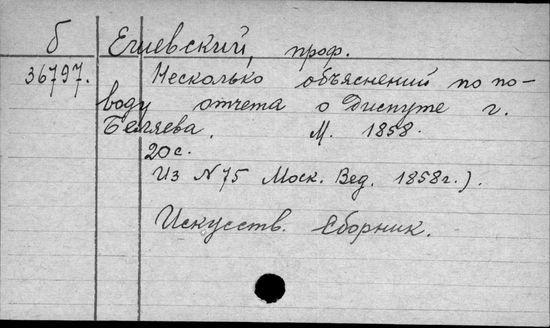 б Ешевский, проф.
36797. Несколько объяснений по по-
воду отчета о Диспуте г.
Беляева. М. 1858.
20 с.
Из N 75 Моск. Вед. 1858 г.).
Искусств. Сборник.